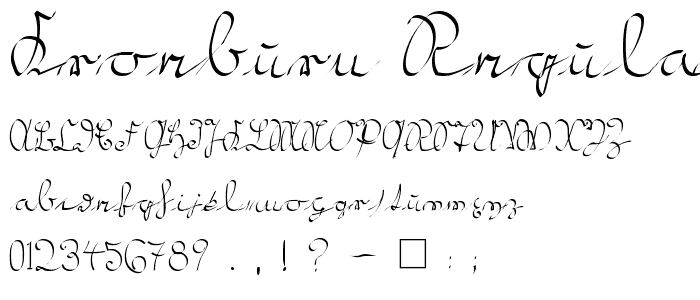 Regula
ABCDEFGHIJKLMNOPQRSTUVWXYZ
abcdefghijklmnopqrstuvwxyz
0123456789 . , ! ? – □ : ;